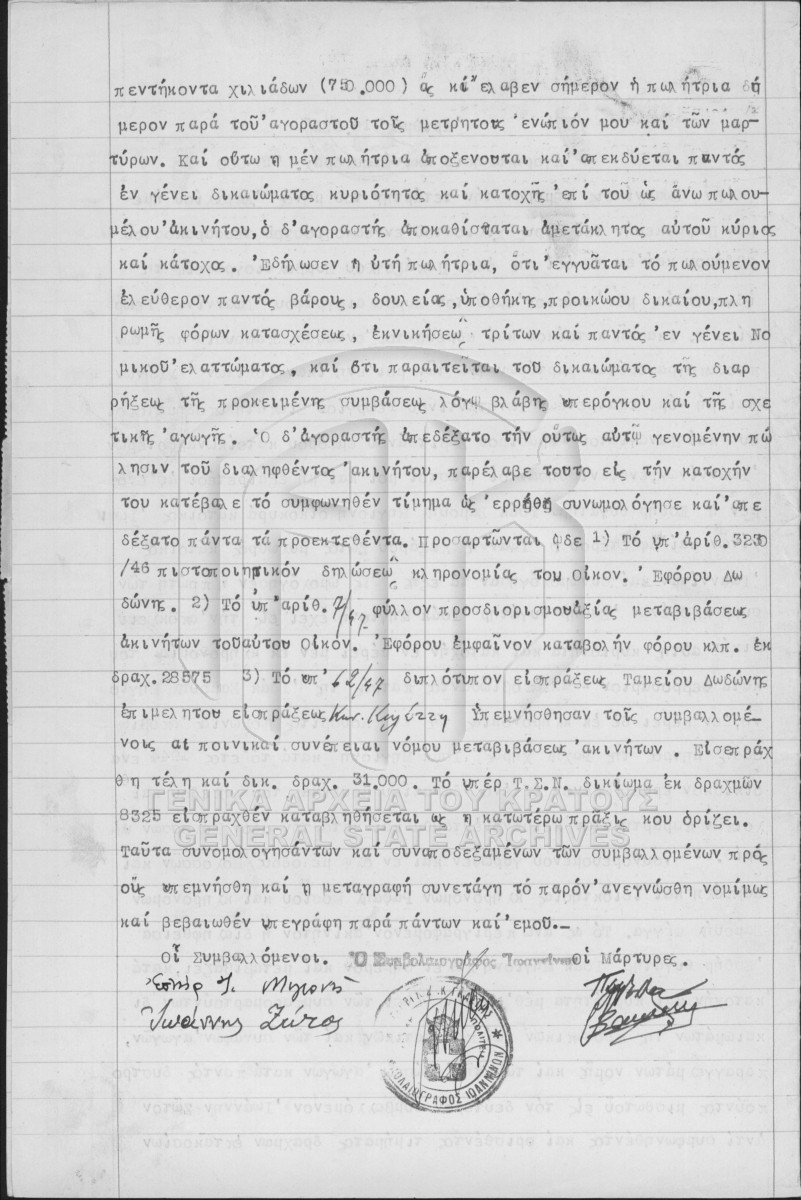 πεντήκοντα χιλιάδων (750.000) ἅς κί'έλαβεν σήμερον ἡ πωλήτρια σή
μερον παρά τοῦ'αγοραστοῦ τοῖς μετρητοῖς 'ενώπιόν μου καί τῶν μαρ-
τύρων. Καί οὕτω η μέν πωλήτρια ἀποξενοῦται καί'απεκδύεται παντός
ἐν γένει δικαιώματος κυριότητος καί κατοχῆς 'επί τοῦ ὡς ἄνω πωλου-
μέλου'ἀκινήτου, ὁ δ'αγοραστής ἀποκαθίσταται ἀμετάκλητος αὐτοῦ κύριος
καί κάτοχος. 'Εδήλωσεν η ὑτή πωλήτρια, ὅτι'εγγυᾶται τό πωλούμενον
ἐλεύθερον παντός βάρους, δουλείας, ὑποθήκης, προικώου δικαίου, πλη
ρωμῆς φόρων κατασχέσεως, ἐκνικήσεως τρίτων καί παντός 'εν γένει Νο
μικοῦ'ελαττώματος, καί ὅτι παραιτεῖται τοῦ δικαιώματος τῆς διαρ
ρήξεως τῆς προκειμένης συμβάσεως λόγῳ βλάβης υπερόγκου καί τῆς σχε
τικῆς'αγωγῆς. Ὁ δ'ἀγοραστής ἀπεδέξατο τήν οὕτως αὐτῷ γενομένην πώ
λησιν τοῦ διαληφθέντος 'ακινήτου, παρέλαβε τοῦτο εἰς τήν κατοχήν
του κατέβαλε τό συμφωνηθέν τίμημα ὡς 'ερρήθη συνωμολόγησε καί'απε
δέξατο πάντα τά προεκτεθέντα. Προσαρτῶνται ὧδε 1) Τό ὑπ'ἀρίθ. 3230
/46 πιστοποιητικόν δηλώσεως κληρονομίας του Οἰκον. 'Εφόρου Δω
δώνης. 2) Τό ὑπ'αρίθ. 7/47 φύλλον προσδιορισμοῦ ἀξίας μεταβιβάσεως
ἀκινήτων τοῦ αὐτοῦ Οἰκον. 'Εφόρου ἐμφαῖνον καταβολήν φόρου κλπ. ἐκ
δραχ. 28575 3) Τό υπ' 62/47 διπλότυπον εἰσπράξεως Ταμείου Δωδώνης
ἐπιμελητοῦ εἰσπράξεως Ὑπεμνήσθησαν τοῖς συμβαλλομέ-
νοις αἱ ποινικαί συνέπειαι νόμου μεταβιβάσεως 'ακινήτων. Εἰσεπράχ
θη τέλη καί δικ. δραχ. 31.000. Τό ὑπέρ Τ.Σ.Ν. δικίωμα ἐκ δραχμῶν
8325 εἰσπραχθέν καταβληθήσεται ως η κατωτέρω πρᾶξις κου ὁρίζει.
Ταῦτα συνομολογησάντων καί συναποδεξαμένων τῶν συμβαλλομένων πρός
οὕς υπεμνήσθη καί η μεταγραφή συνετάγη τό παρόν'ανεγνώσθη νομίμως
καί βεβαιωθέν υπεγράφη παρά πάντων καί'εμοῦ.-
Οἱ Συμβαλλόμενοι. Ὁ Συμβολαιογράφος Ἰωαννίνων οἱ Μάρτυρες.
Ἰωάννης Ζώτος
ΣΥΜΒΟΛΑΙΟΓΡΑΦΟΣ ΙΩΑΝΝΙΝΩΝ
ΓΕΝΙΚΑ ΑΡΧΕΙΑ ΤΟΥ ΚΡΑΤΟΥΣ
GENERAL STATE ARCHIVES